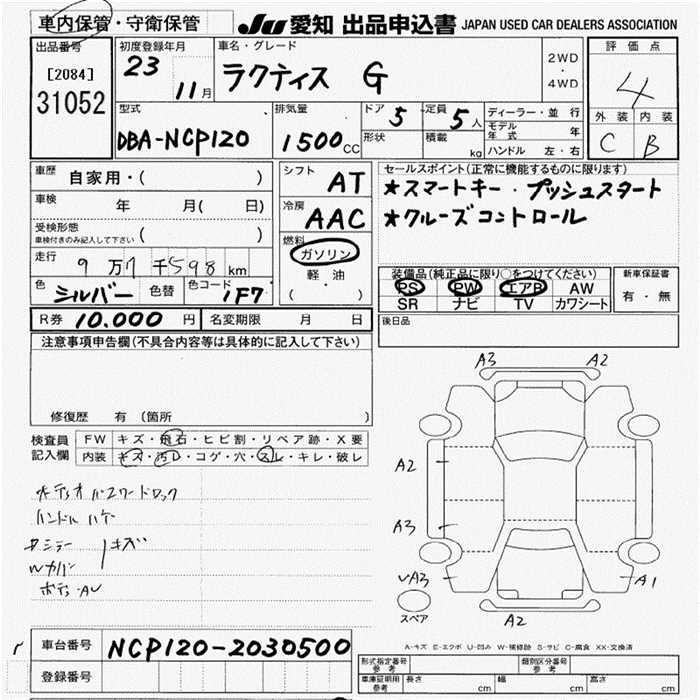 車内保管・守衛保管 JU 愛知 出品申込書 JAPAN USED CAR DEALERS ASSOCIATION
出品番号 初度登録年月 車名・グレード 2WD・4WD 評価点
[2084] 31052 23 11月 ラクティス G 4
型式 排気量 ドア 定員 ディーラー・並行 外装 内装
DBA-NCP120 1500cc 5 5人 モデル年式 年 C B
形状 積載 kg ハンドル 左・右
車歴 自家用・( ) シフト AT セールスポイント(正常に機能するものに限ります)
車検 年 月( 日) 冷房 AAC ★スマートキー・プッシュスタート
受検形態 車検付きのみ記入して下さい ( ) ★クルーズコントロール
走行 9万7千598km 燃料 ガソリン 軽油 ( ・ )
色 シルバー 色替 色コード 1F7
装備品(純正品に限り○をつけてください) 新車保証書
PS PW エアB AW 有・無
SR ナビ TV カワシート
R券 10.000円 名変期限 月 日 後日品
注意事項申告欄(不具合内容等は具体的に記入して下さい)
修復歴 有(箇所 )
検査員記入欄 FW キズ・飛石・ヒビ割・リペア跡・X要
内装 キズ・汚レ・コゲ・穴・スレ・キレ・破レ
オーディオパスワードロック
ハンドルハゲ
キズ
Wカバー
A3 A2
A2
A3
A3 A1
スペア A2
A-キズ E-エクボ U-凹み W-補修跡 S-サビ C-腐食 XX-交換済
車台番号 NCP120-2030500
登録番号
形式指定番号 参考 類別区分番号 参考
車庫証明用 参考 長さ cm 幅 cm 高さ cm